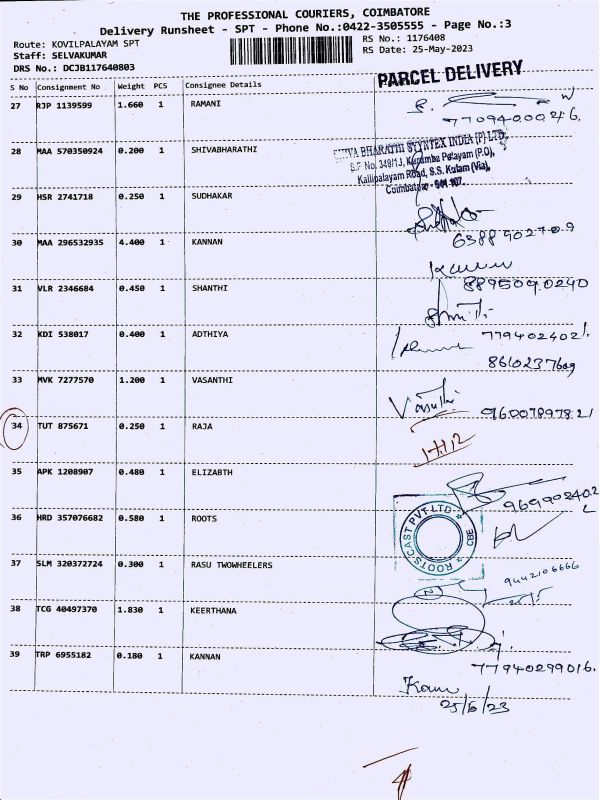 THE PROFESSIONAL COURIERS, COIMBATORE
Delivery Runsheet - SPT - Phone No.:0422-3505555 - Page No.:3
Route: KOVILPALAYAM SPT
RS No.: 1176408
Staff: SELVAKUMAR
RS Date: 25-May-2023
DRS No.: DCJB117640803
PARCEL DELIVERY
S No Consignment No Weight PCS Consignee Details
27 RJP 1139599 1.660 1 RAMANI
7709400026.
28 MAA 570350924 0.200 1 SHIVABHARATHI
SHIVA BHARATHI SYNTEX INDIA (P) LTD.
S.F No. 348/1J, Kurumba Palayam (P.O),
Kallipalayam Road, S.S. Kulam (Via),
Coimbatore - 641 107.
29 HSR 2741718 0.250 1 SUDHAKAR
6388902709
30 MAA 296532935 4.400 1 KANNAN
8895090240
31 VLR 2346684 0.450 1 SHANTHI
32 KDI 538017 0.400 1 ADTHIYA
7794024021
8610237609
33 MVK 7277570 1.200 1 VASANTHI
Vasuthi 96007897821
34 TUT 875671 0.250 1 RAJA
35 APK 1208907 0.480 1 ELIZABTH
969902402
36 HRD 357076682 0.580 1 ROOTS
ROOTSCAST PVT LTD * CBE *
37 SLM 320372724 0.300 1 RASU TWOWHEELERS
9442106666
25/5
38 TCG 40497370 1.830 1 KEERTHANA
39 TRP 6955182 0.180 1 KANNAN
77940299016.
25/5/23